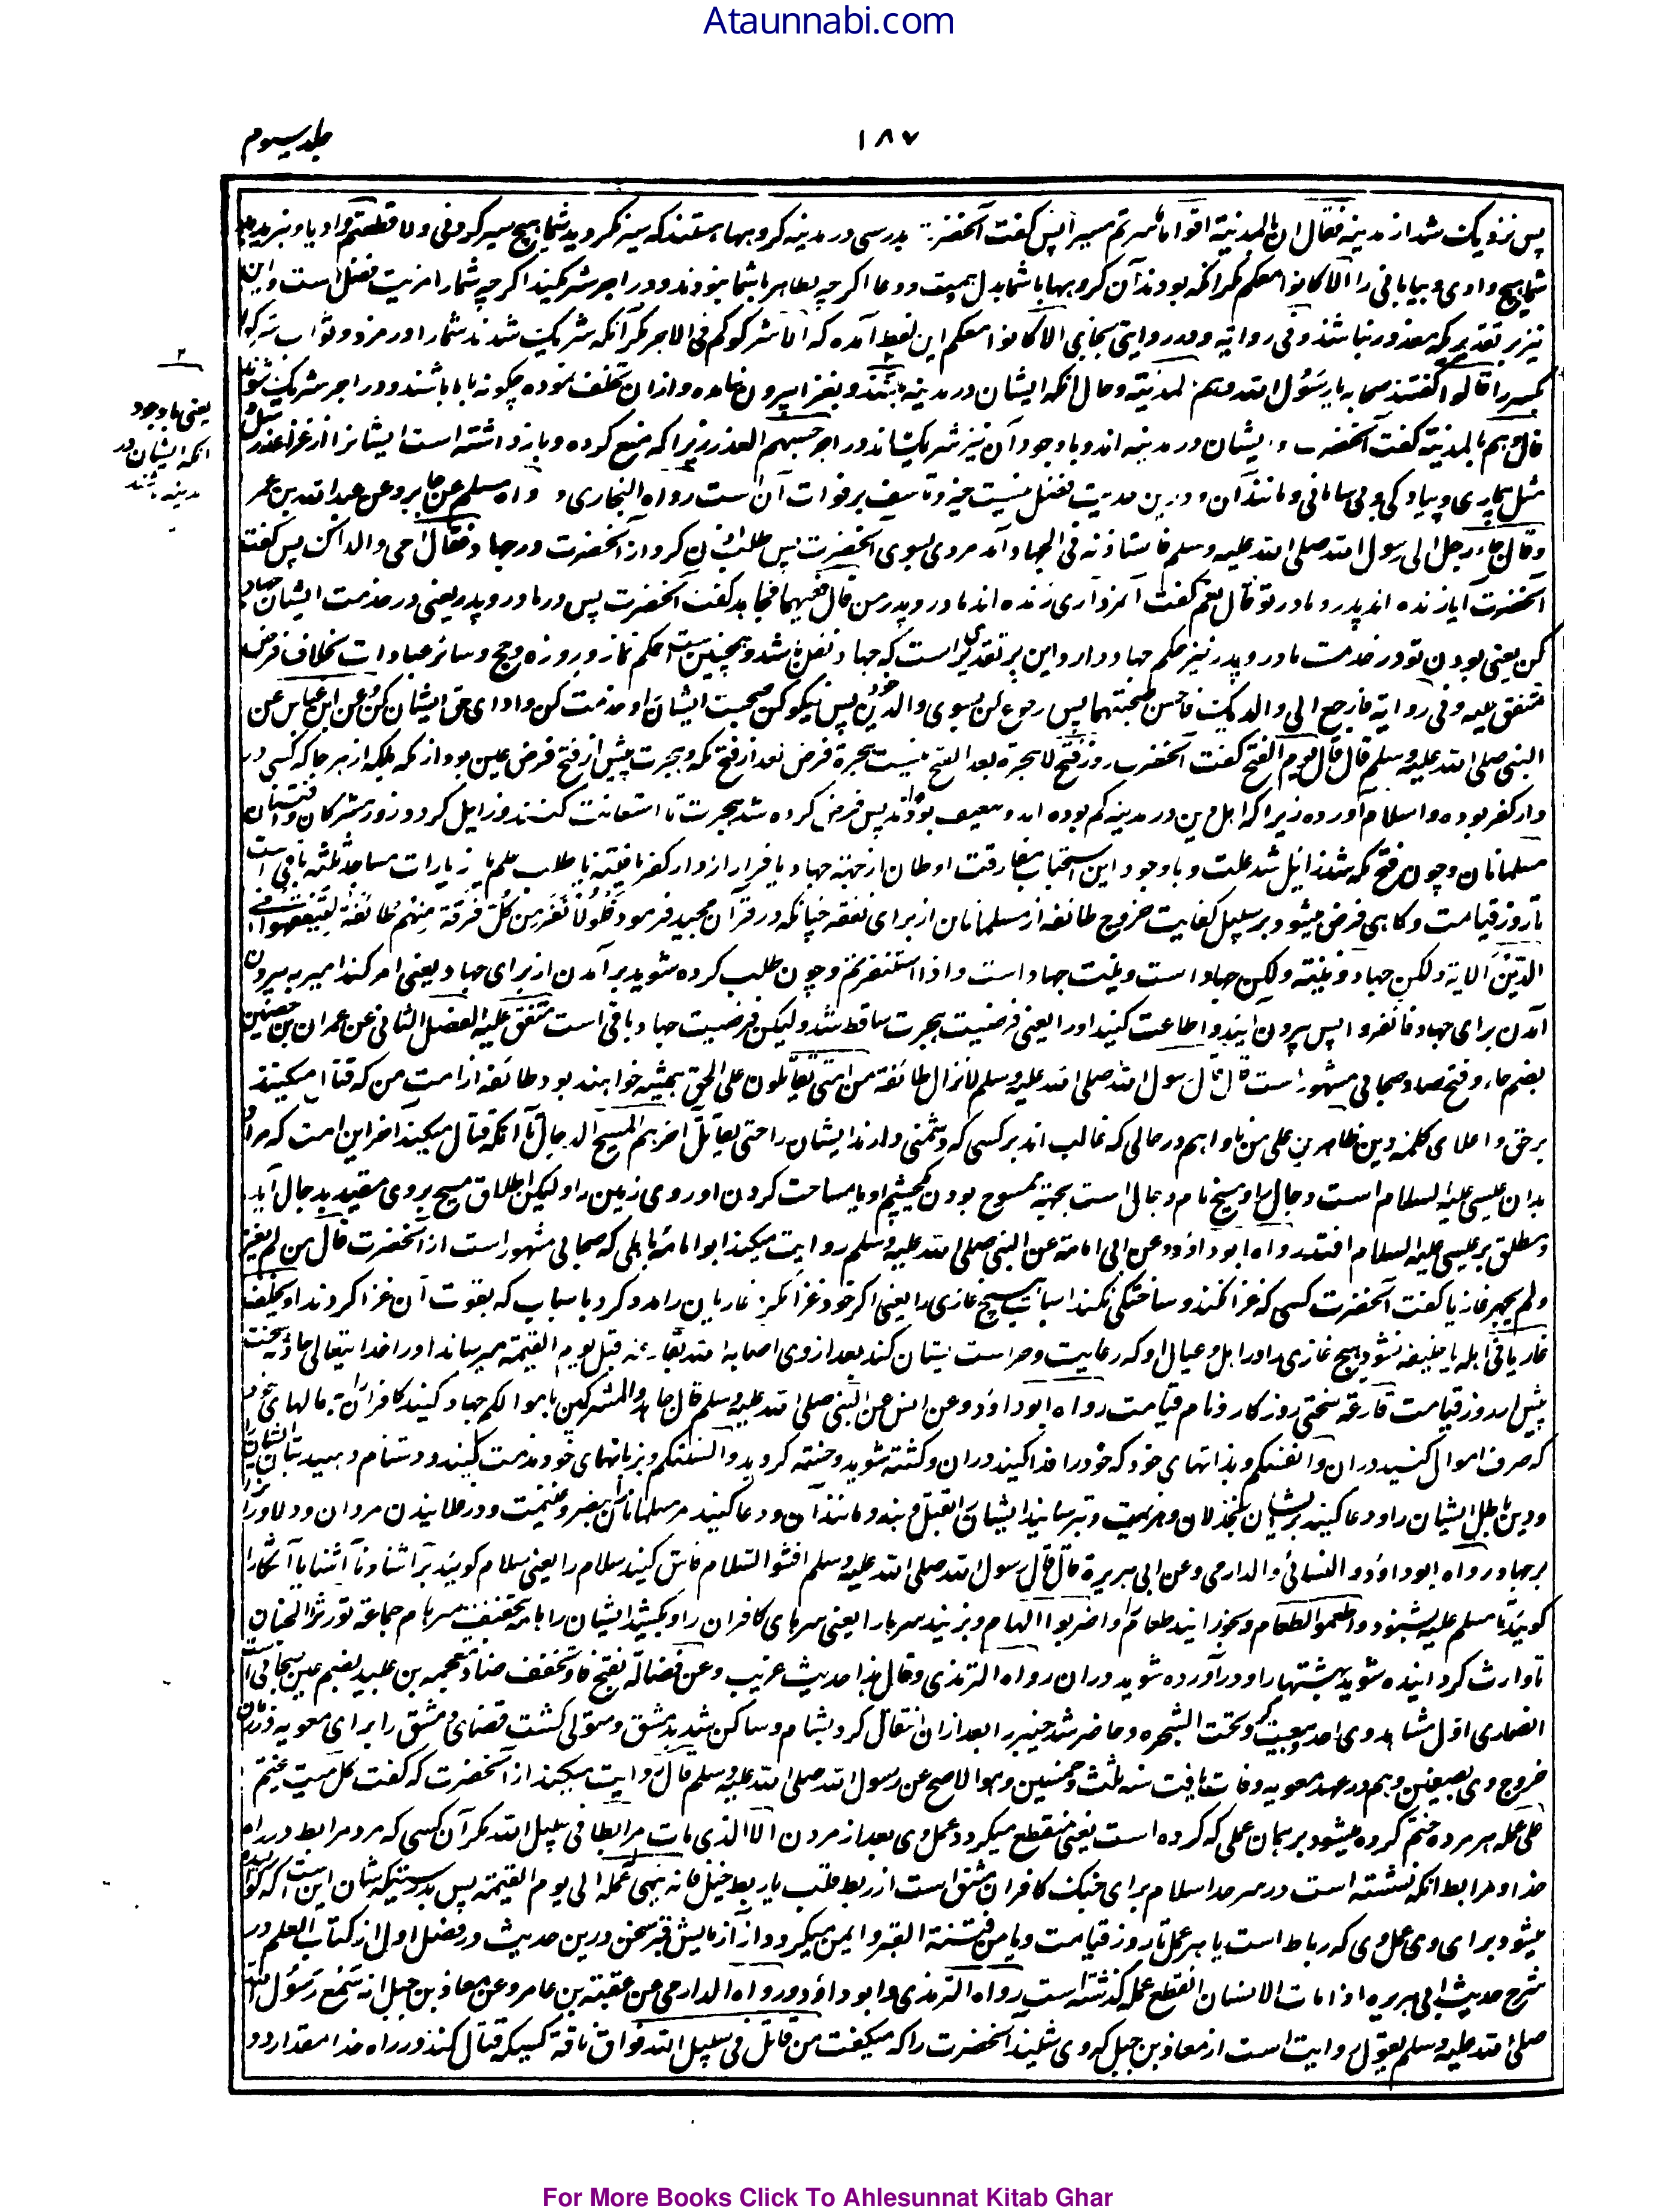 Ataunnabi.com
جلد سیوم
۱۸۷
پس نزدیک شد از مدینه فقال ان بالمدینة اقواما ما سرتم مسیرا پس گفت آنحضرت بدرستی در مدینه گروهها هستند که سیر نکردید شما هیچ سیر کردنی ولا قطعتم وادیا و نبریدید
شما هیچ وادی و بیابانی را الا کانوا معکم مگر آنکه بودند آن گروهها با شما بدل و همت و دعا اگرچه بظاهر با شما نبودند و در اجر شریکند اگرچه شما را مزیت فضل است و این
نیز بر تقدیریکه معذور نباشند و فی روایة و در روایتی بجای الا کانوا معکم این لفظ آمده که الا شرکوکم فی الاجر مگر آنکه شریک شدند شما را در مزد و ثواب
قالوا گفتند صحابه یا رسول الله وهم بالمدینة و حال آنکه ایشان در مدینه باشند و بغزا بیرون نیامده و ازان تخلف نموده چگونه با ما باشند و در اجر شریک شوند
قال وهم بالمدینة گفت آنحضرت و ایشان در مدینه اند و با وجود آن نیز شریک اند در اجر حبسهم العذر زیرا که منع کرده و باز داشته است ایشانرا از غزا عذر
مثل بیماری و پیادگی و بی سامانی و مانند آن و درین حدیث فضل نیت خیر و تاسف بر فوات آن است رواه البخاری و رواه مسلم عن جابر وعن عبد الله بن عمر
وقال جاء رجل الی رسول الله صلی الله علیه وسلم فاستاذنه فی الجهاد آمد مردی بسوی آنحضرت پس طلب اذن کرد از آنحضرت در جهاد فقال احی والداک پس گفت
آنحضرت آیا زنده اند پدر و مادر تو قال نعم گفت آنمرد آری زنده اند مادر و پدر من قال ففیهما فجاهد گفت آنحضرت پس در مادر و پدر یعنی در خدمت ایشان جهاد
کن یعنی بودن تو در خدمت مادر و پدر نیز حکم جهاد دارد و این بر تقدیری است که جهاد نفل باشد و همچنین ست حکم نماز و روزه و حج و سائر عبادات بخلاف فرض
متفق علیه و فی روایة فارجع الی والدیک فاحسن صحبتهما پس رجوع کن بسوی والدین خود پس نیکو کن صحبت ایشان را و خدمت کن و ادای حق ایشان کن وعن ابن عباس عن
النبی صلی الله علیه وسلم قال قال یوم الفتح گفت آنحضرت روز فتح لا هجرة بعد الفتح نیست هجرة فرض بعد از فتح مکه و هجرت پیش از فتح فرض عین بود از مکه بلکه از هر جا که کسی در
دار کفر بوده و اسلام آورده زیرا که اهل دین در مدینه کم بوده اند و ضعیف بودند پس فرض کرده شد هجرت تا استعانت کنند و زایل گردد زور مشرکان
مسلمانان و چون فتح مکه شد زائل شد علت و با وجود این استحباب مفارقت اوطان از جهة جهاد یا فرار از دار کفر یا فتنه یا طلب علم یا زیارات مساجد ثلثه باقی است
تا روز قیامت و گاهی فرض میشود بر سبیل کفایت خروج طائفه از مسلمانان از برای تفقه چنانکه در قرآن مجید فرمود فلولا نفر من کل فرقة منهم طائفة لیتفقهوا فی
الدین الایة ولکن جهاد ونیة ولکن جهاد است و نیت جهاد است واذا استنفرتم و چون طلب کرده شوید برآمدن از برای جهاد یعنی امر کند امیر به بیرون
آمدن برای جهاد فانفروا پس بیرون آیند و اطاعت کنید او را یعنی فرضیت هجرت ساقط شد ولیکن فرضیت جهاد باقی است متفق علیه الفصل الثانی عن عمران بن حصین
بضم حاء و فتح صاد صحابی مشهور است قال قال رسول الله صلی الله علیه وسلم لا تزال طائفة من امتی یقاتلون علی الحق همیشه خواهند بود طائفه از امت من که قتال میکنند
بر حق و اعلای کلمه دین ظاهرین علی من ناواهم در حالی که غالب اند بر کسی که دشمنی دارند ایشان را حتی یقاتل آخرهم المسیح الدجال تا آنکه قتال میکند آخر این امت که مراد
بدان عیسی علیه السلام است دجال را و مسیح نام دجال است بجهة ممسوح بودن یکچشم او یا مساحت کردن او روی زمین را ولیکن اطلاق مسیح بر وی مقید بدجال آید
و مطلق بر عیسی علیه السلام افتد رواه ابو داؤد وعن ابی امامة عن النبی صلی الله علیه وسلم روایت میکند ابو امامه باهلی که صحابی مشهور است از آنحضرت قال من لم یغز
ولم یجهز غازیا گفت آنحضرت کسی که غزا نکند و ساختگی نکند اسباب هیچ غازی را یعنی اگر خود غزا نکرد غازیان را مدد کرد باسباب که بقوت آن غزا کردند او یخلف
غازیا فی اهله یا خلیفه نشود هیچ غازی را در اهل و عیال او که رعایت و حراست ایشان کند بعد از وی اصابه الله بقارعة قبل یوم القیمة میرساند او را خدا یتعالی حادثه سخت
پیش از روز قیامت قارعه سختی روزگار و نام قیامت رواه ابو داؤد وعن انس عن النبی صلی الله علیه وسلم قال جاهدوا المشرکین باموالکم جهاد کنید کافران را بمالهای خود
که صرف اموال کنید دران وانفسکم و بذاتهای خود که خود را فدا کنید دران و کشته شوید و خسته گردید والسنتکم و بزبانهای خود مذمت کنید و دشنام دهید بتان ایشان را
و دین باطل ایشان را و دعا کنید بر ایشان بخذلان و هزیمت و بترسانید ایشان را بقتل و بند و مانند آن و دعا کنید مر مسلمانان را بنصر و غنیمت و درطلبیدن مردان و دلاوران را
بر جهاد رواه ابو داؤد والنسائی والدارمی وعن ابی هریرة قال قال رسول الله صلی الله علیه وسلم افشوا السلام فاش کنید سلام را یعنی سلام گویند بر آشنا و نا آشنا یا آشکارا
گویند تا مسلم علیه بشنود واطعموا الطعام و بخورانید طعام واضربوا الهام و بزنید سرها را یعنی سرهای کافران را و بکشید ایشان را هامه بتخفیف سر هام جماعة تورثوا الجنان
تا وارث گردانیده شوید بهشتها را و در آورده شوید دران رواه الترمذی وقال هذا حدیث غریب وعن فضالة بفتح فا و تخفیف ضاد معجمه بن عبید بضم عین صحابی است
انصاری اول مشاهد وی احد و بیعت کرد تحت الشجره و حاضر شد خیبر را بعد ازان انتقال کرد بشام و ساکن شد بدمشق و متولی گشت قضای دمشق را برای معویه در زمان
خروج وی بصفین و هم در عهد معویه وفات یافت سنه ثلث وخمسین وهو الاصح عن رسول الله صلی الله علیه وسلم قال روایت میکند از آنحضرت که گفت کل میت یختم
علی عمله هر مرده ختم کرده میشود بر همان عملی که کرده است یعنی منقطع میگردد عمل وی بعد از مردن الا الذی مات مرابطا فی سبیل الله مگر آن کسی که مرد مرابط در راه
خدا و مرابط آنکه نشسته است در سرحد اسلام برای جنگ کافران مشتق است از ربط قلب یا ربط خیل فانه ینمی له عمله الی یوم القیمة پس بدرستیکه شان این است که
میشود برای وی عمل وی که رباط است یا هر عمل تا روز قیامت ویامن فتنة القبر و ایمن میگردد از آزمایش قبر سخن درین حدیث در فصل اول از کتاب العلم در
شرح حدیث ابی هریره اذا مات الانسان انقطع عمله گذشته است رواه الترمذی وابو داؤد ورواه الدارمی عن عقبة بن عامر وعن معاذ بن جبل انه سمع رسول الله
صلی الله علیه وسلم یقول روایت است از معاذ بن جبل که وی شنید آنحضرت را که میگفت من قاتل فی سبیل الله فواق ناقة کسیکه قتال کند در راه خدا مقدار دو
۲
یعنی با وجود
آنکه ایشان در
مدینه باشند
For More Books Click To Ahlesunnat Kitab Ghar